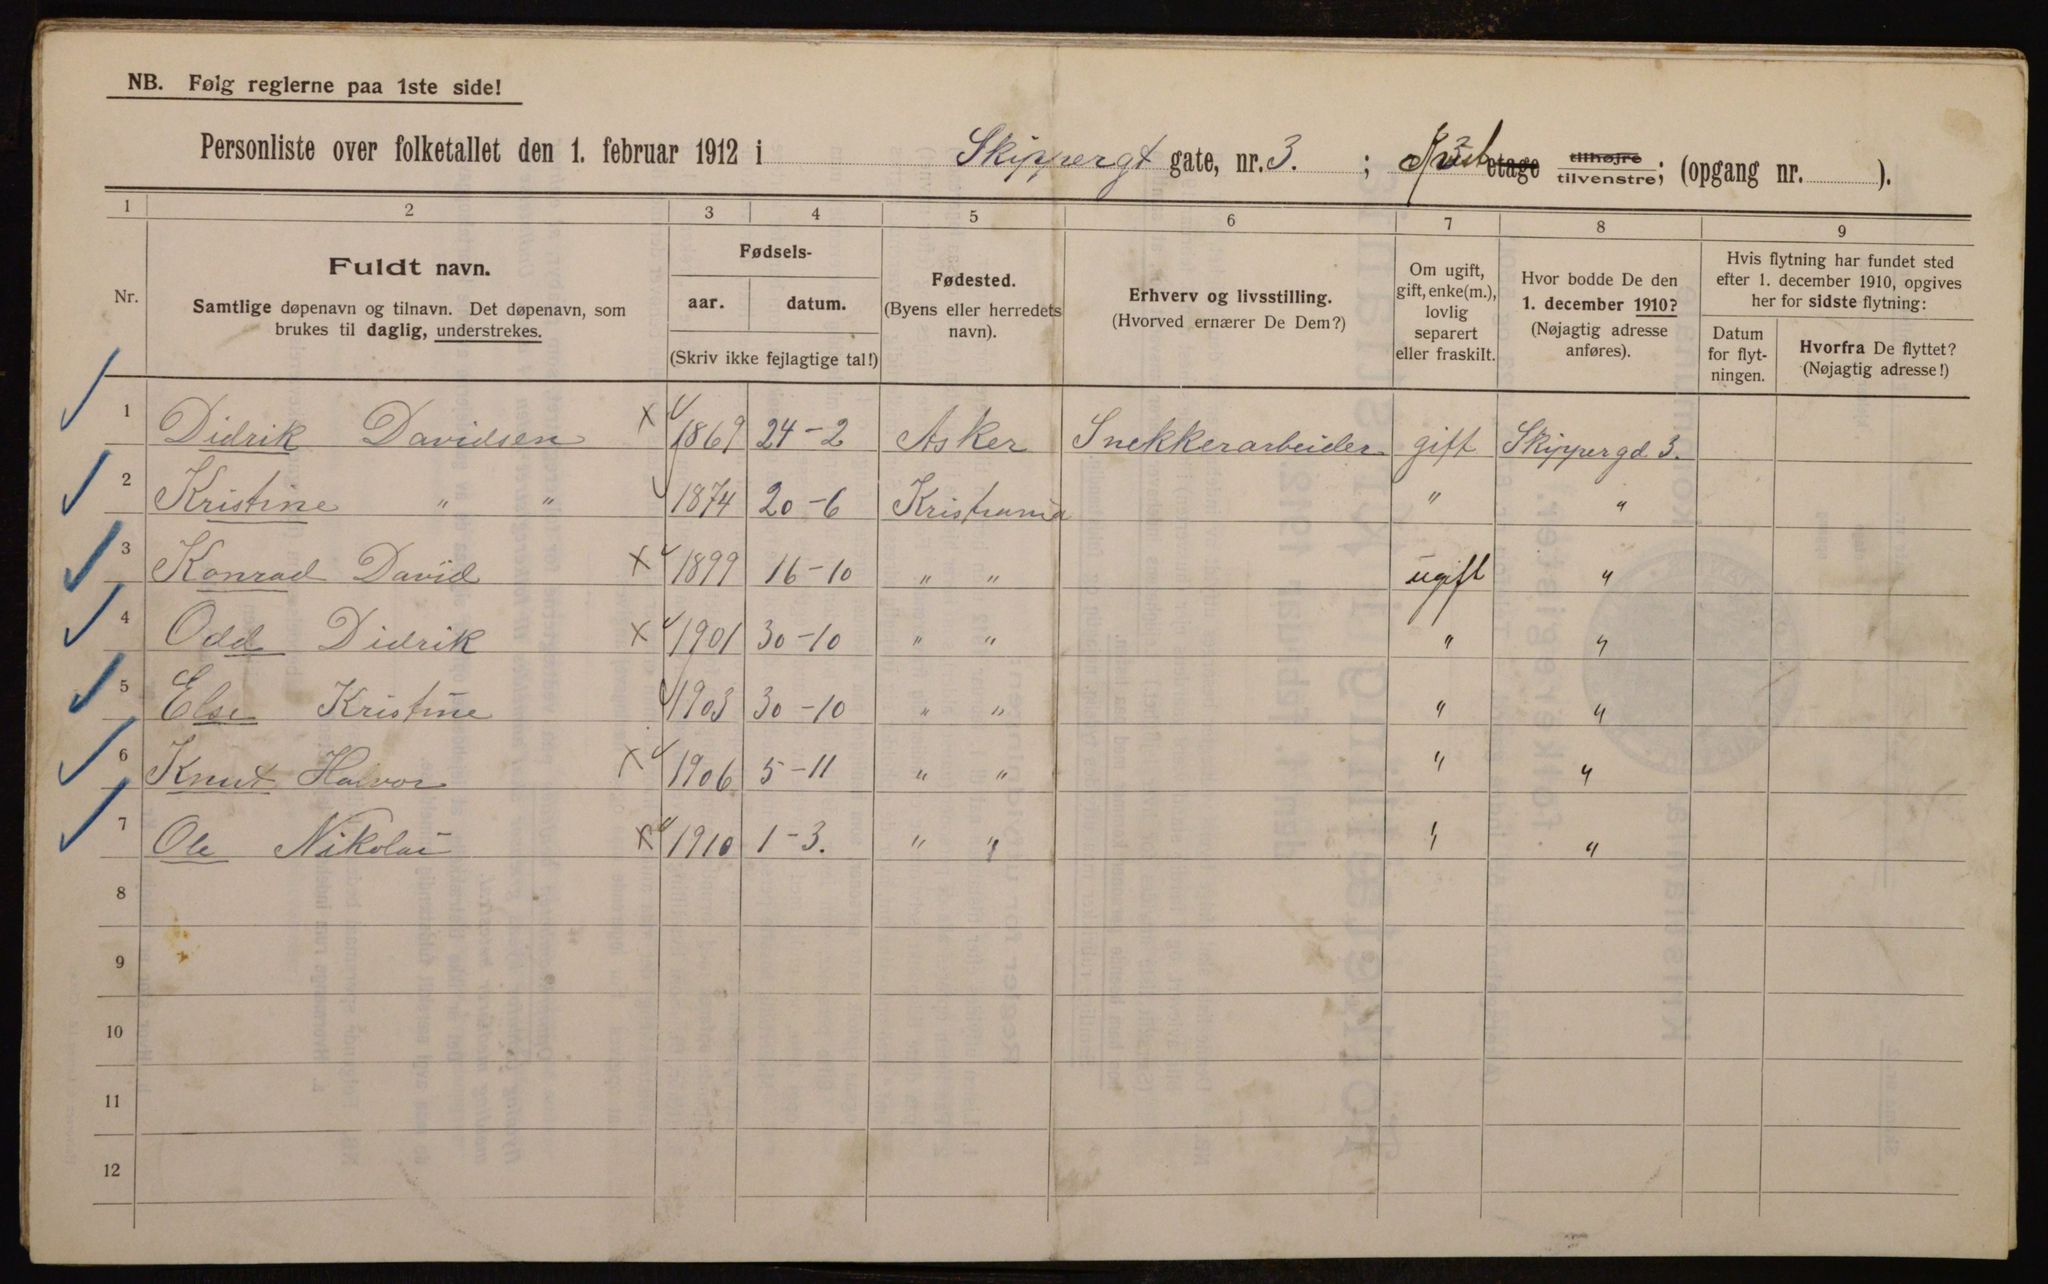 NB. Følg reglerne paa 1ste side!
Personliste over folketallet den 1. februar 1912 i Skippergt gate, nr. 3. ; etage tilhøjre tilvenstre; (opgang nr. ).
1 2 3 4 5 6 7 8 9
Nr.
Fuldt navn.
Samtlige døpenavn og tilnavn. Det døpenavn, som
brukes til daglig, understrekes.
Fødsels-
aar. datum.
(Skriv ikke fejlagtige tal!)
Fødested.
(Byens eller herredets
navn).
Erhverv og livsstilling.
(Hvorved ernærer De Dem?)
Om ugift,
gift, enke(m.),
lovlig
separert
eller fraskilt.
Hvor bodde De den
1. december 1910?
(Nøjagtig adresse
anføres).
Hvis flytning har fundet sted
efter 1. december 1910, opgives
her for sidste flytning:
Datum
for flyt-
ningen.
Hvorfra De flyttet?
(Nøjagtig adresse!)
1 Didrik Davidsen 1869 24-2 Asker Snekkerarbeider gift Skippergd 3.
2 Kristine " " 1874 20-6 Kristiania " "
3 Konrad David 1899 16-10 " " ugift "
4 Odd Didrik 1901 30-10 " " " "
5 Else Kristine 1903 30-10 " " " "
6 Knut Halvor 1906 5-11 " " " "
7 Ole Nikolai 1910 1-3. " " " "
8
9
10
11
12